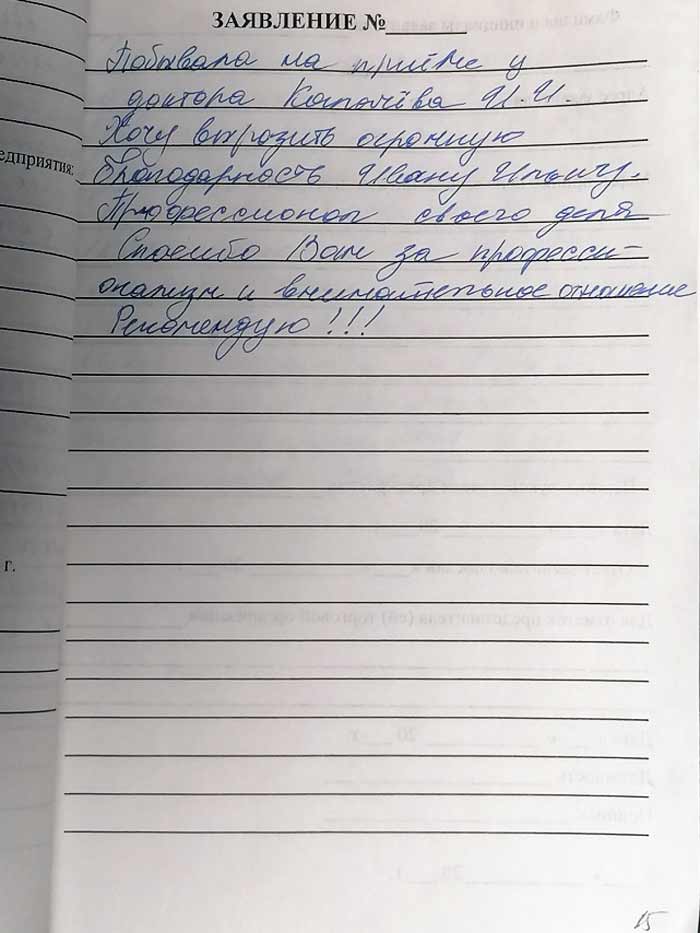 ЗАЯВЛЕНИЕ №
Побывала на приёме у
доктора И.И.
Хочу выразить огромную
благодарность Ивану Ильичу.
Профессионал своего дела
Спасибо Вам за професси-
онализм и внимательное отношение
Рекомендую!!!
едприятия:
г.
15